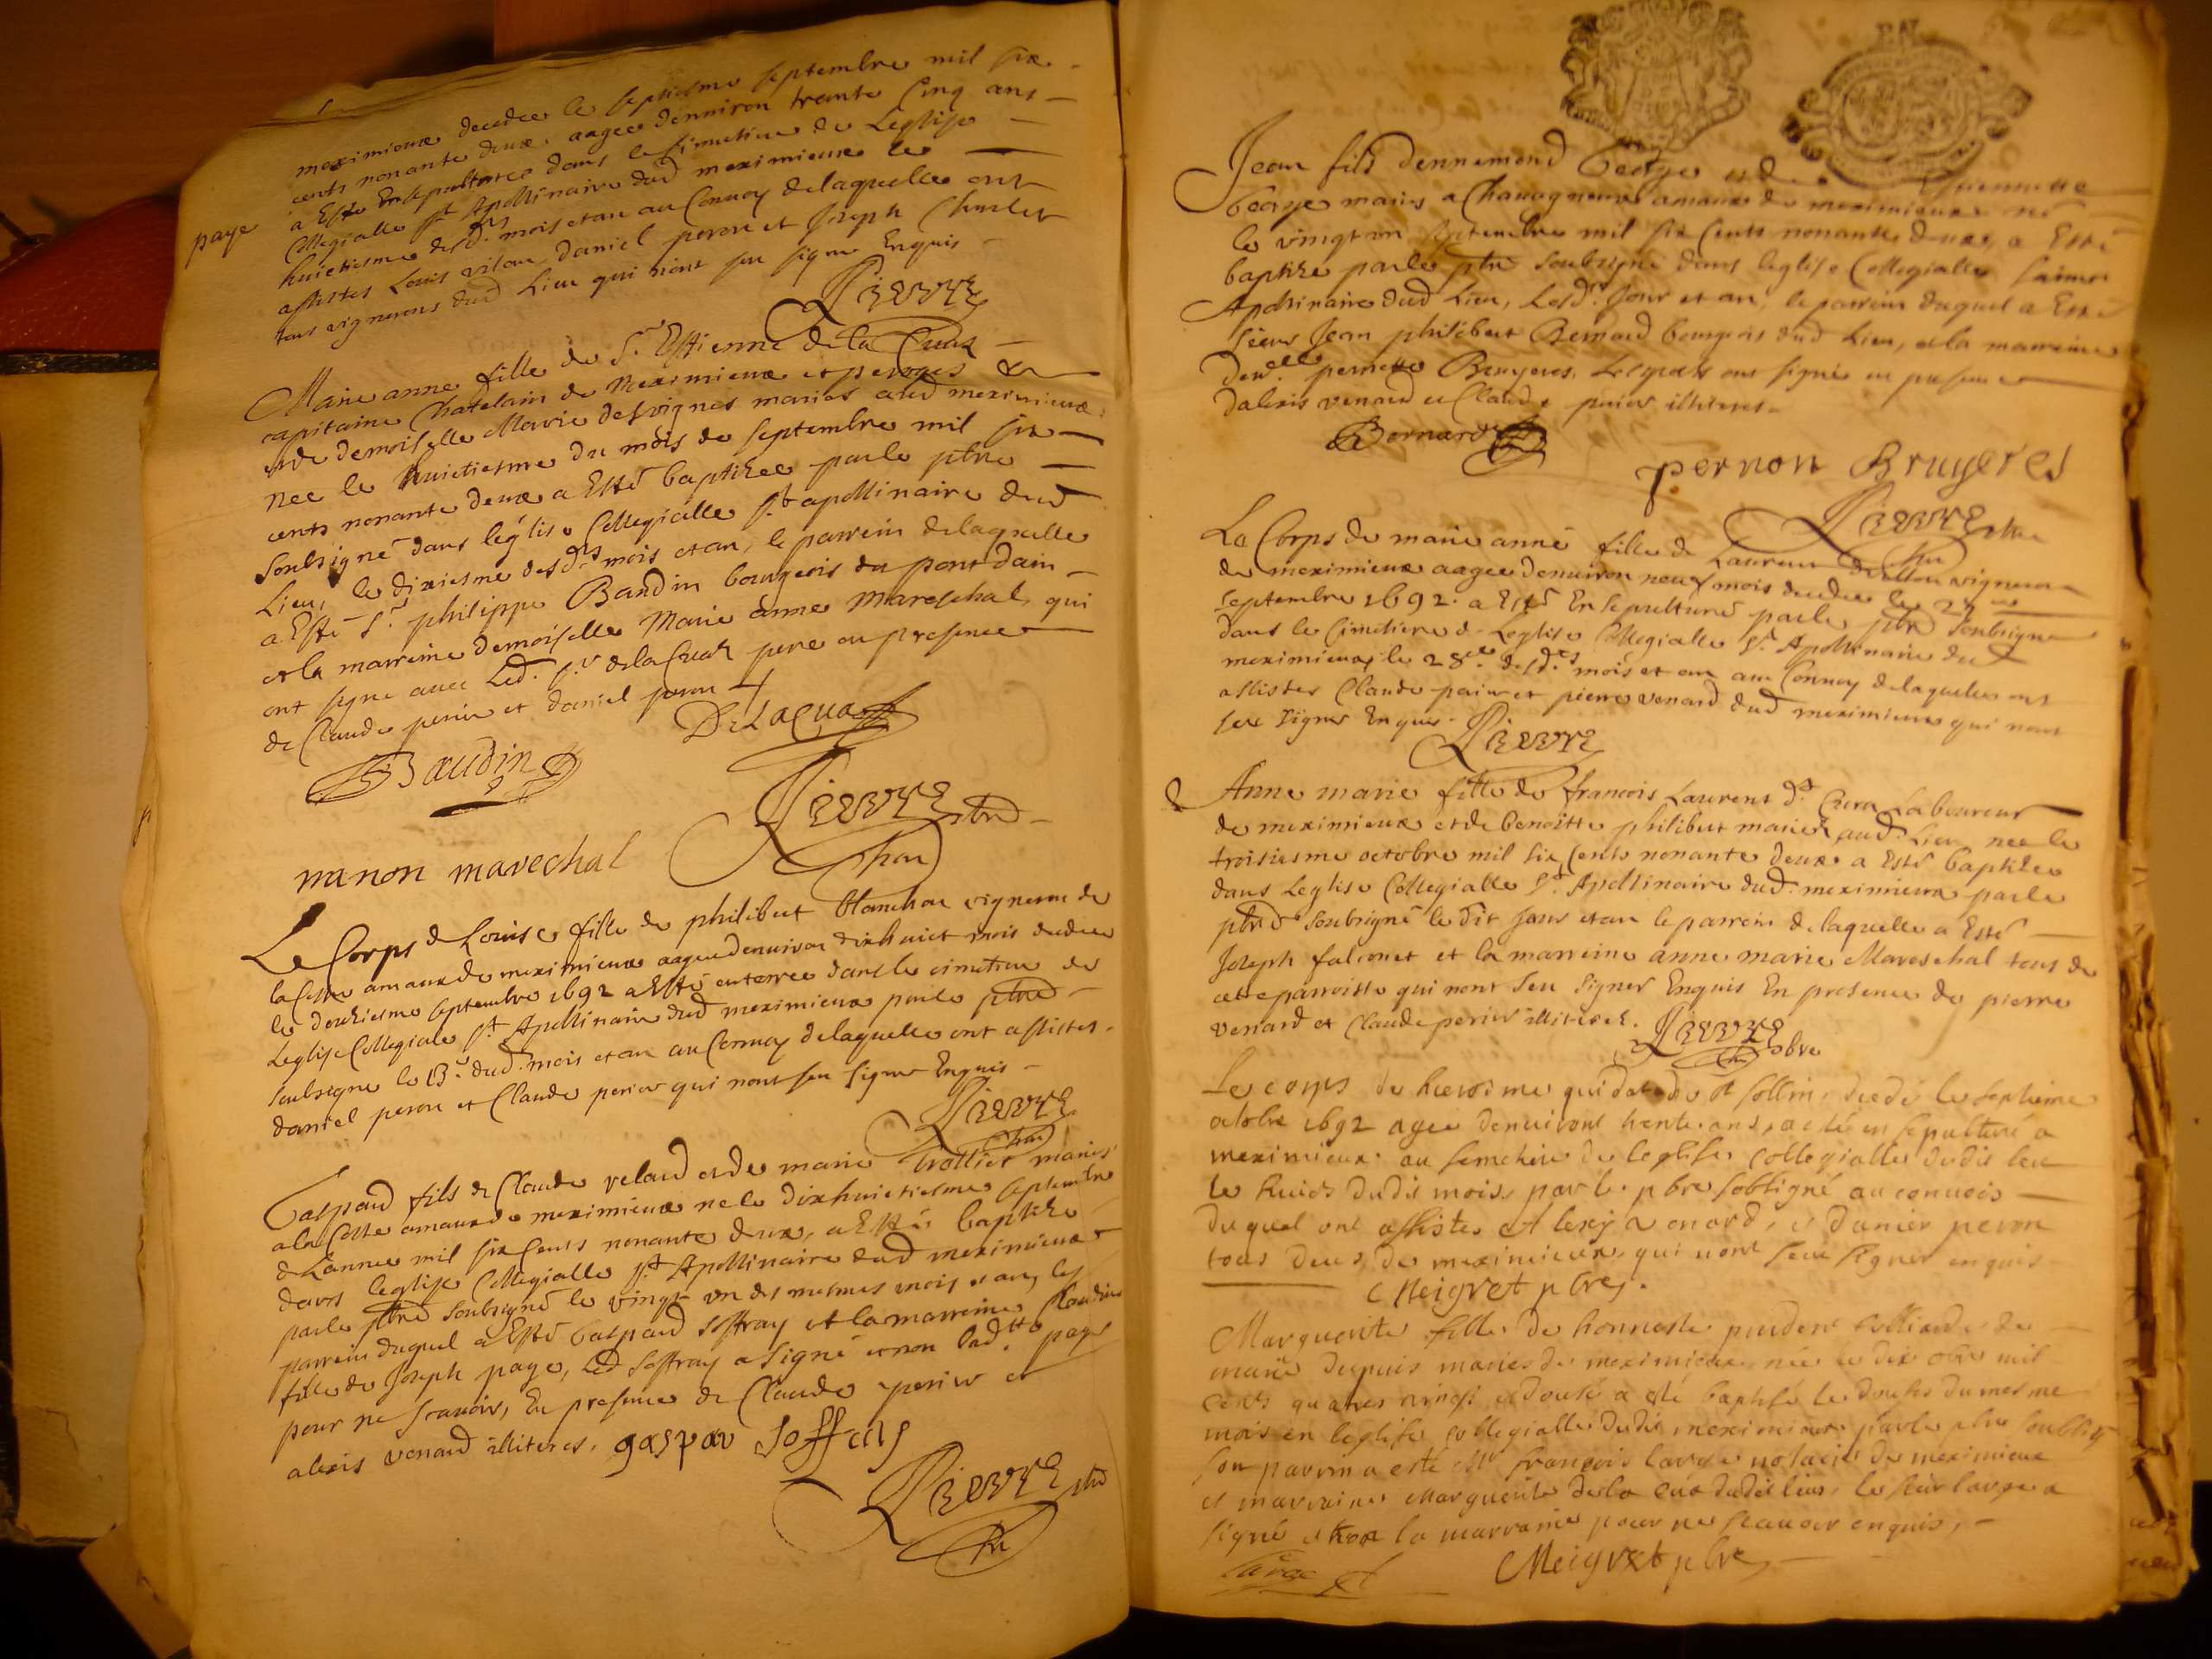 meximieux decedee le septiesme septembre mil six
cents nonante deux, aagee denuiron trante cinq ans
a Esté Ensepulturée dans le Cimetiere de Leglise
Collegialle St Apollinaire dud meximieux le
paye
huictiesme desd. mois et an au Conuoy delaquelle ont
assistes Louis daniel peron et Joseph Charles
tous vignerons dud Lieu qui nont seu signer Enquis
Marie anne fille de Sr. Estienne de la Cuaz
capitaine Chatelain de Meximieux et peroges &
et de demoiselle Marie desvignes maries aud meximieux
nee le huictiesme du mois de septembre mil six
cents nonante deux a Esté baptizee par le ptre
soubsigné dans léglise Collegialle St. apollinaire dud
Lieu, le dixiesme desds mois et an, le parrein delaquelle
a Esté Sr. philippe Baudin bourgeois du pont dain
et la marreine demoiselle Marie anne Mareschal, qui
ont signe avec Led. Sr. de la Cuaz pere en presence
de Claude perier et daniel peron
DeLaCua
Baudin
ptre
manon marechal
Le Corps de Louise fille de philibert blanchon vigneron de
la Coste amaux de meximieux aagee denuiron dixhuict mois decedee
le douziesme septembre 1692 a Esté enterree dans le cimetiere de
Leglise Collegiale St Apollinaire dud meximieux par le ptre
soubsigne le 13e. dud. mois et an au Conuoy delaquelle ont assistes
daniel peron et Claude perier qui nont seu signer Enquis
Gaspard fils de Claude velard et de marie trollier maries
a la Coste amaux de meximieux ne le dixhuictiesme septembre
de Lannee mil six Cents nonante deux, a Esté baptize
dans leglise Collegialle St Apollinaire dud meximieux
par le ptre soubsigné le vingt un des mesmes mois et an, le
parrein duquel a Esté Gaspard soffray et la marreine Claudine
fille de Joseph page, Led soffray a signé et non Lad. page
pour ne scauoir, En presence de Claude perier et
alexis venard illiteres. gaspar soffray
ptre
Jean fils dennemond George et de Estiennette
George maries a Chauagneux amaux de meximieux né
le vingt un septembre mil six Cents nonante deux, a Esté
baptize par le ptre soubsigné dans leglise Collegialle saint
Apollinaire dud Lieu, Lesd. Jour et an, le parrein duquel a Esté
sieur Jean philibert Bernard bourgeois dud Lieu, et la marreine
dem.elle pernette Bruyeres, Lesquels ont signé en presence
dalexis venard et Claude perier illiteres
Bernard
pernon Bruyeres
ptre
Le Corps de marie anne fille de Laurent vigneron
de meximieux aagee denuiron neuf mois decedee le 27
septembre 1692. a Esté Ensepulturé par le ptre soubsigne
dans le Cimetiere de Leglise Collegialle St. Apollinaire dud
meximieux le 28e. desd.es mois et an au Conuoy delaquelle ont
assistes Claude perier et pierre venard dud meximieux qui nont
seu signer Enquis.
Anne marie fille de francois Laurent dt. Laboureur
de meximieux et de benoitte philibert maries aud. Lieu nee le
troisiesme octobre mil six Cents nonante deux a Esté baptizee
dans Leglise Collegialle St. Apollinaire dud. meximieux par le
ptre soubsigné le dit Jour et an le parrein de laquelle a Esté
Joseph falconet et la marreine anne marie Mareschal tous de
cette parroisse qui nont seu signer Enquis En presence de pierre
venard et Claude perier illiteres.
Le corps de hierosme decedé le septieme
octobre 1692 agee denuiront trente ans, a esté en sepulturé a
meximieux au semetiere de leglise collegialle dudit lieu
le huict dudit mois, par le pbre sobsigné au conuois
duquel ont assistes Alexy venard, et danier peron
tous deux de meximieux qui nont seu signer enquis
Meigret pbre.
Marguerite fille de honneste prudent et de
marie dupuis maries de meximieux née le dix 8bre mil
cents quatres vingt et douse a esté baptisé le dudit du mesme
mois en leglise collegialle dudit meximieux par le pbre soubsig
son parrin a esté Mr françois notaire de meximieux
et marraine Marguerite de la cua dudit lieu, le sieur a
signé et non la marraine pour ne scauoir enquis,
Meigret pbre